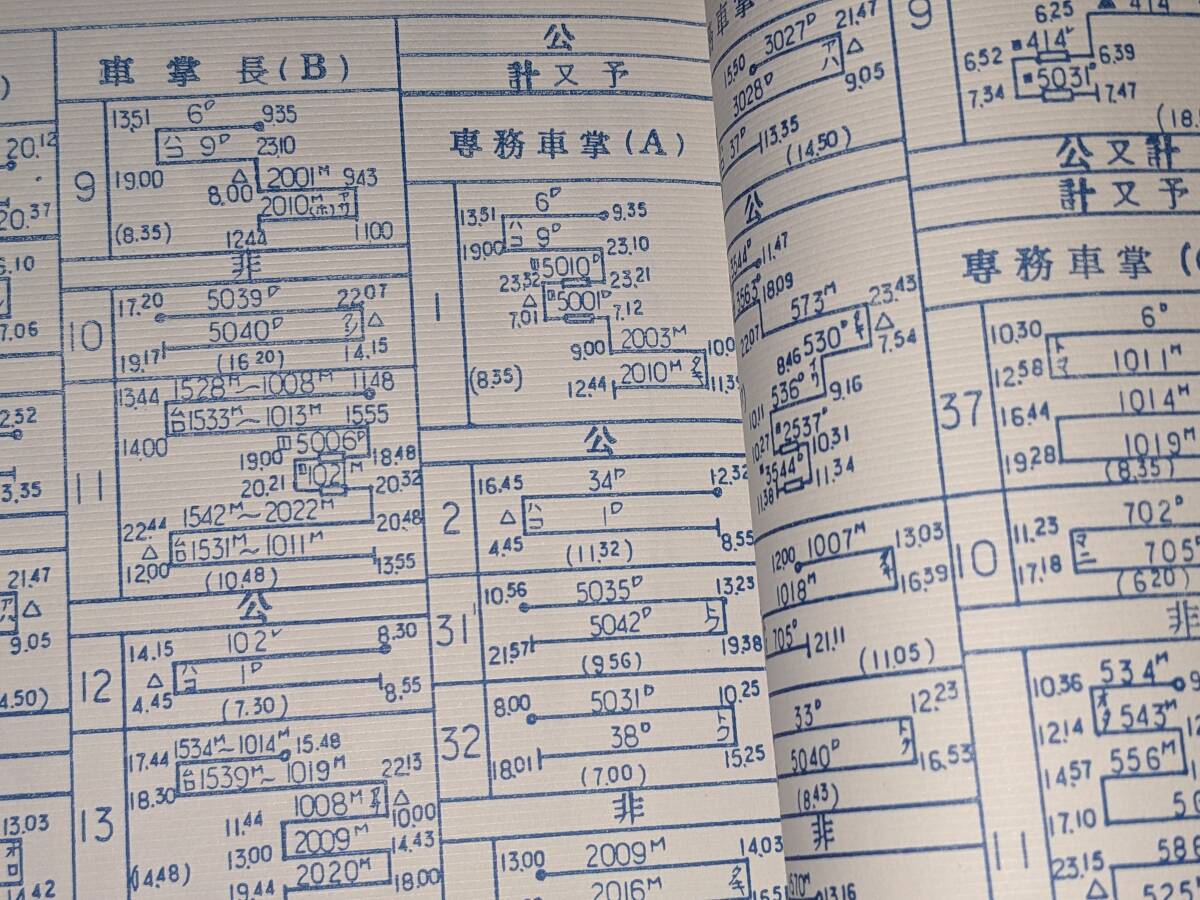 20.12
20.37
6.10
7.06
2.32
3.35
21.47
9.05
4.50)
13.03
14.42
車掌長(B)
9
13.51 6D 9.35
ハコ 9D 23.10
19.00
8.00 △ 2001M 9.43
2010M(ホ)
(8.35) 12.44 11.00
非
10
17.20 5039D 22.07
5040D △
19.17 (16.20) 14.15
11
13.44 1528M~1008M 11.48
1533M~1013M 15.55
14.00
5006D
19.00 18.48
102M
20.21 20.32
1542M~2022M
22.44 20.48
△ 1531M~1011M
12.00 (10.48) 13.55
公
12
14.15 102レ 8.30
△ ハコ 1D
4.45 (7.30) 8.55
13
17.44 1534M~1014M 15.48
1539M~1019M
18.30 22.13
1008M △
11.44 10.00
2009M
13.00 14.43
2020M
(14.48) 19.44 18.00
公
計又予
専務車掌(A)
1
13.51 6D 9.35
ハコ 9D
19.00 23.10
5010D
23.32 23.21
△ 5001D
7.01 7.12
2003M
9.00
2010M
(8.35) 12.44
公
2
16.45 34D 12.32
△ ハコ 1D
4.45 (11.32) 8.55
31
10.56 5035D 13.23
5042D トウ
21.57 (9.56) 19.38
32
8.00 5031D 10.25
38D トウ
18.01 (7.00) 15.25
非
13.00 2009M 14.03
2016M
3027D 21.47
15.50 アハ △
3028D 9.05
37D 13.35
(14.50)
公
3544D 11.47
3563D 18.09
573M 23.43
22.07
8.46 530D △
7.54
536D
10.11 9.16
2537D
10.27 10.31
3544D
11.38 11.34
12.00 1007M 13.03
1018M 16.39
705D 21.11
(11.05)
33D 12.23
5040D トウ
16.53
(8.43)
非
13.16
9
6.25 414
414レ
6.52 6.39
5031D
7.34 7.47
公又計
計又予
専務車掌
37
10.30 6D
トマ 1011M
12.58
16.44 1014M
19.28 1019M
(8.35)
10
11.23 702D
マニ 705D
17.18 (6.20)
非
11
10.36 534M
543M
12.14
556M
14.57
17.10
23.15
△